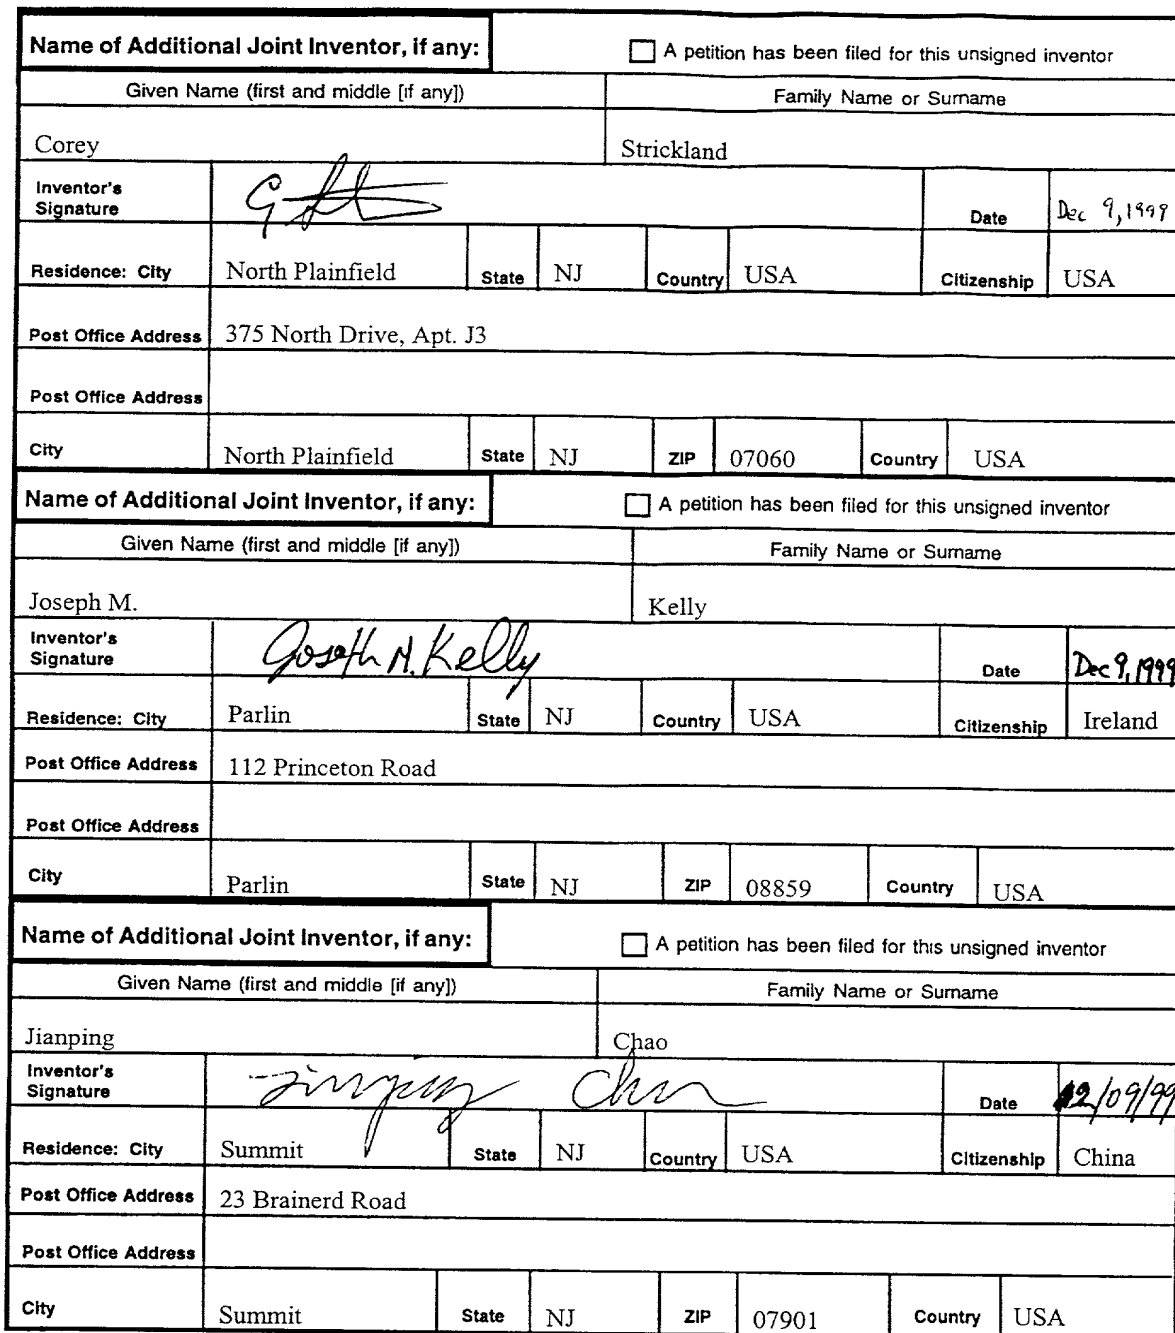 Name of Additional Joint Inventor, if any: A petition has been filed for this unsigned inventor
Given Name (first and middle [if any]) Family Name or Surname
Corey Strickland
Inventor's
Signature Date Dec 9, 1999
Residence: City North Plainfield State NJ Country USA Citizenship USA
Post Office Address 375 North Drive, Apt. J3
Post Office Address
City North Plainfield State NJ ZIP 07060 Country USA
Name of Additional Joint Inventor, if any: A petition has been filed for this unsigned inventor
Given Name (first and middle [if any]) Family Name or Surname
Joseph M. Kelly
Inventor's
Signature Joseph M. Kelly Date Dec 9, 1999
Residence: City Parlin State NJ Country USA Citizenship Ireland
Post Office Address 112 Princeton Road
Post Office Address
City Parlin State NJ ZIP 08859 Country USA
Name of Additional Joint Inventor, if any: A petition has been filed for this unsigned inventor
Given Name (first and middle [if any]) Family Name or Surname
Jianping Chao
Inventor's
Signature Date 12/09/99
Residence: City Summit State NJ Country USA Citizenship China
Post Office Address 23 Brainerd Road
Post Office Address
City Summit State NJ ZIP 07901 Country USA